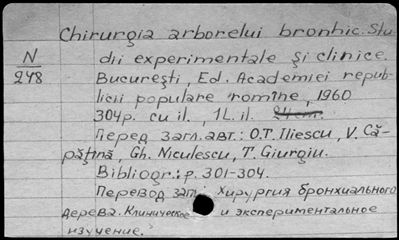 Chirurgia arborelui bronhic. Stu-
N
248
dii experimentale şi clinice.
Bucureşti, Ed. Academiei repub-
licii populare romîne, 1960
304p. cu il., 1L. il. 24 cm.
Перед загл. авт.: O.T. Iliescu, V. Că-
păţînă, Gh. Niculescu, T. Giurgiu.
Bibliogr.: p. 301-304.
Перевод загл.: Хирургия бронхиального
дерева. Клиническое и экспериментальное
изучение.